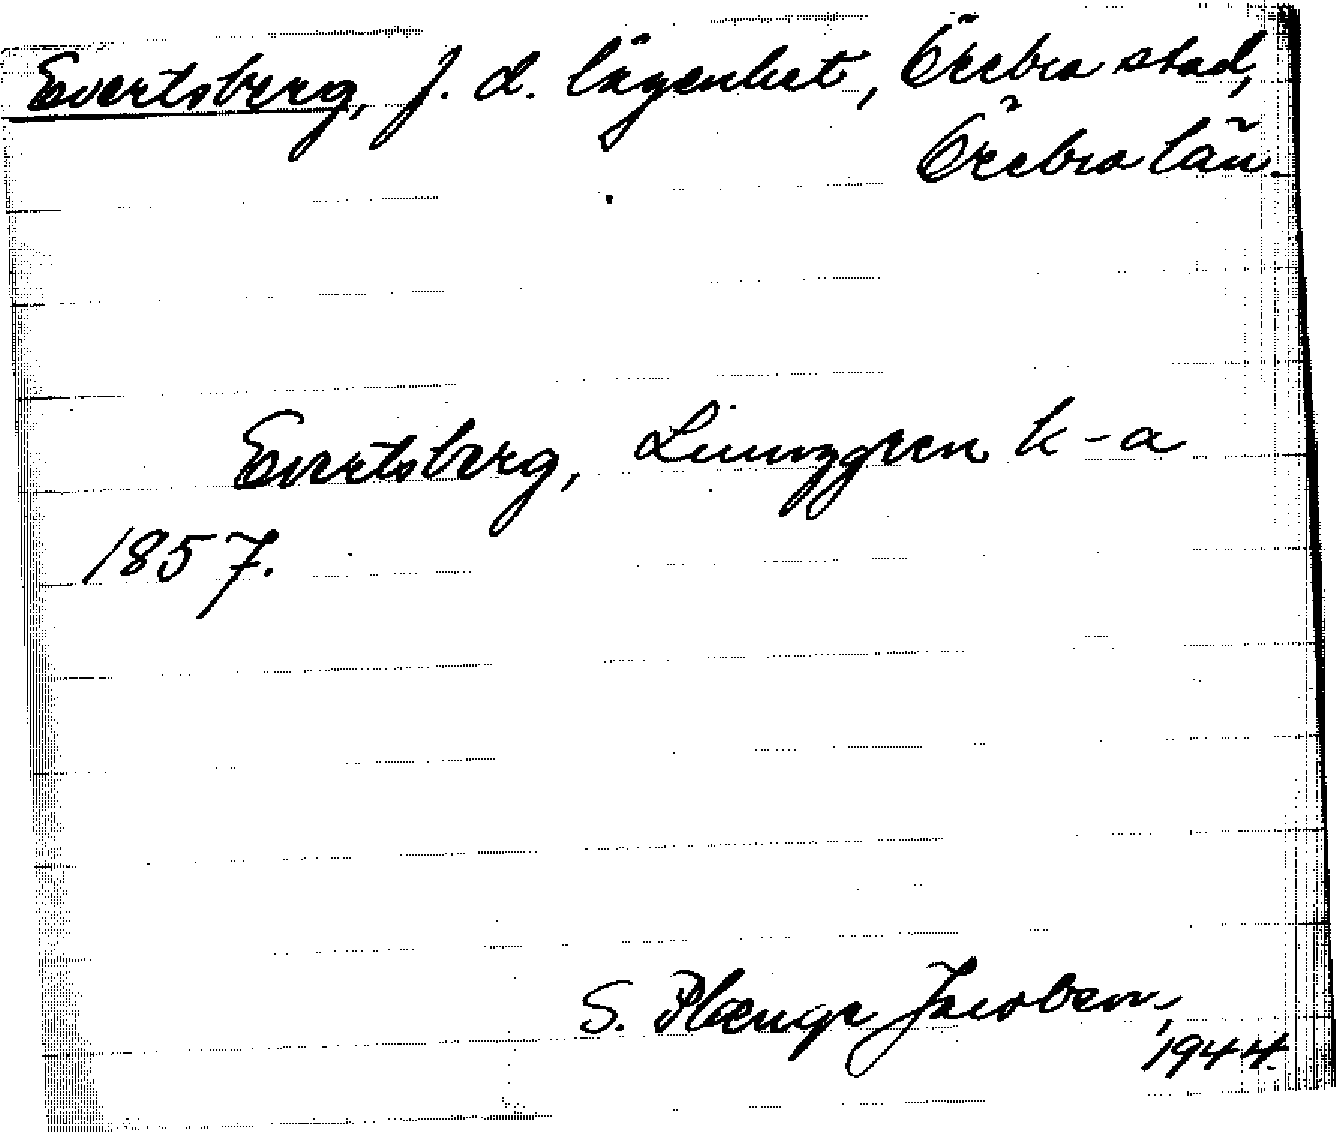 Evertsberg, f. d. lägenhet, Örebro stad,
Örebro län.
Evertsberg, Ljunggren k-a
1857.
S. Plænge Jacobsen,
1944.